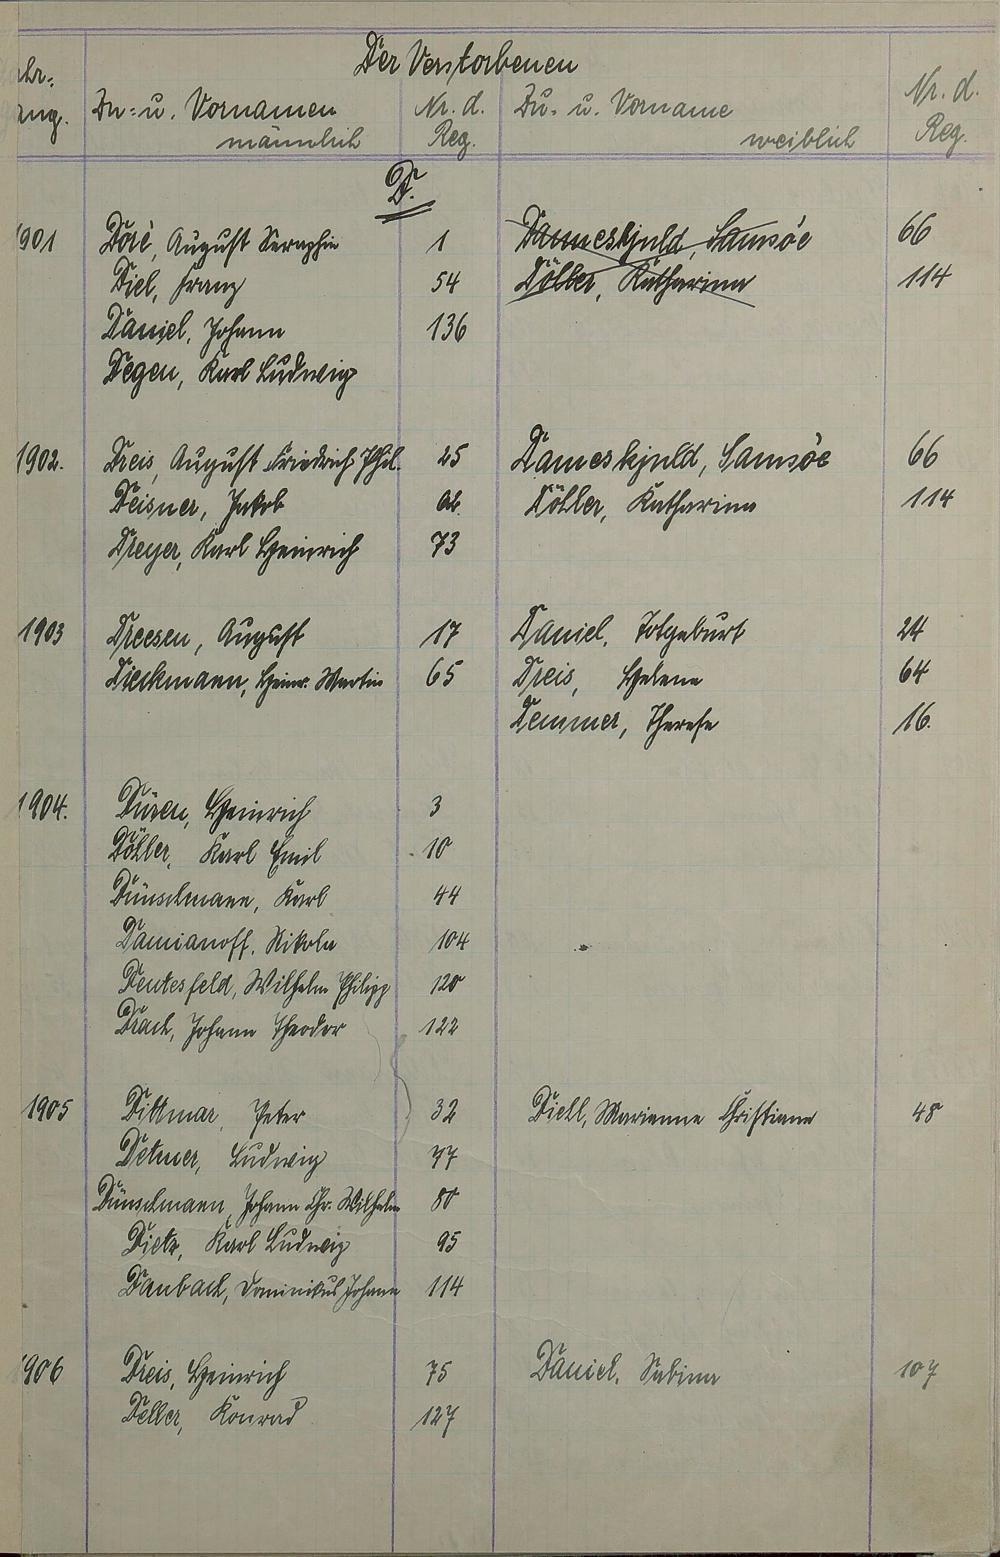 Der Verstorbenen
Jahr-
gang. Zu- u. Vornamen Nr. d. Zu- u. Vorname Nr. d.
männlich Reg. weiblich Reg.
D.
1901 Doré, August Seraphin 1 Danneskjuld, Samsöe 66
Diel, Franz 54 Döller, Katharina 114
Daniel, Johann 136
Degen, Karl Ludwig
1902. Dreis, August Friedrich Phil. 25 Dameskjuld, Samsöe 66
Deisner, Jakob Döller, Katharina 114
Dreyer, Karl Heinrich 73
1903 Dreesen, August 17 Daniel, Totgeburt 24
Dieckmann, Heinr. Martin 65 Dreis, Helene 64
Demmer, Therese 16.
1904. Düren, Heinrich 3
Döller, Karl Emil 10
Dünschmann, Karl 44
Damianoff, Nikola 104
Deutesfeld, Wilhelm Philipp 120
Drach, Johann Theodor 122
1905 Dittmar, Peter 32 Diell, Marianne Christiane 48
Detmer, Ludwig 77
Dünschmann, Johann Chr. Wilhelm 80
Dietz, Karl Ludwig 95
Daubach, Dominikus Johann 114
1906 Dreis, Heinrich 75 Daniel, Sabina 107
Deller, Konrad 127